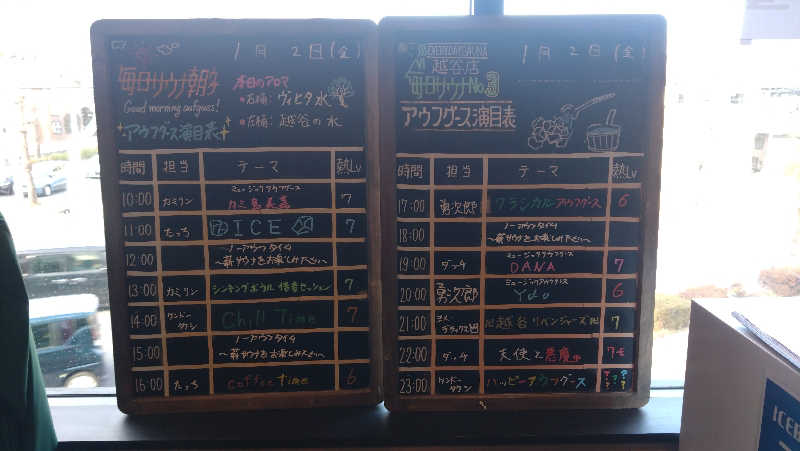 1月2日(金)
毎日サウナ朝子
Good morning aufguss!
アウフグース演目表
本日のアロマ
右桶：ヴィヒタ水
左桶：越谷の水
時間 担当 テーマ 熱Lv
ミュージックアウフグース
10:00 カミリン 7
11:00 たっち ICE 7
12:00 ノーアウフタイム
〜薪サウナをお楽しみ下さい〜
13:00 カミリン シンキングボウル 倍音セッション 7
14:00 ケンドータケシ Chill Time 7
15:00 ノーアウフタイム
〜薪サウナをお楽しみ下さい〜
16:00 たっち coffee time 6
EVERYDAY SAUNA
越谷店
1月2日(金)
毎日サウナNo.3
アウフグース演目表
時間 担当 テーマ 熱Lv
17:00 勇次郎 クラシカルアウフグース 6
18:00 ノーアウフタイム
〜薪サウナをお楽しみ下さい〜
ミュージックアウフグース
19:00 ダッチ DANA 7
ミュージックアウフグース
20:00 勇次郎 6
21:00 越谷リベンジャーズ 7
22:00 ダッチ 天使と悪魔 7
23:00 ハッピーアウフグース ???